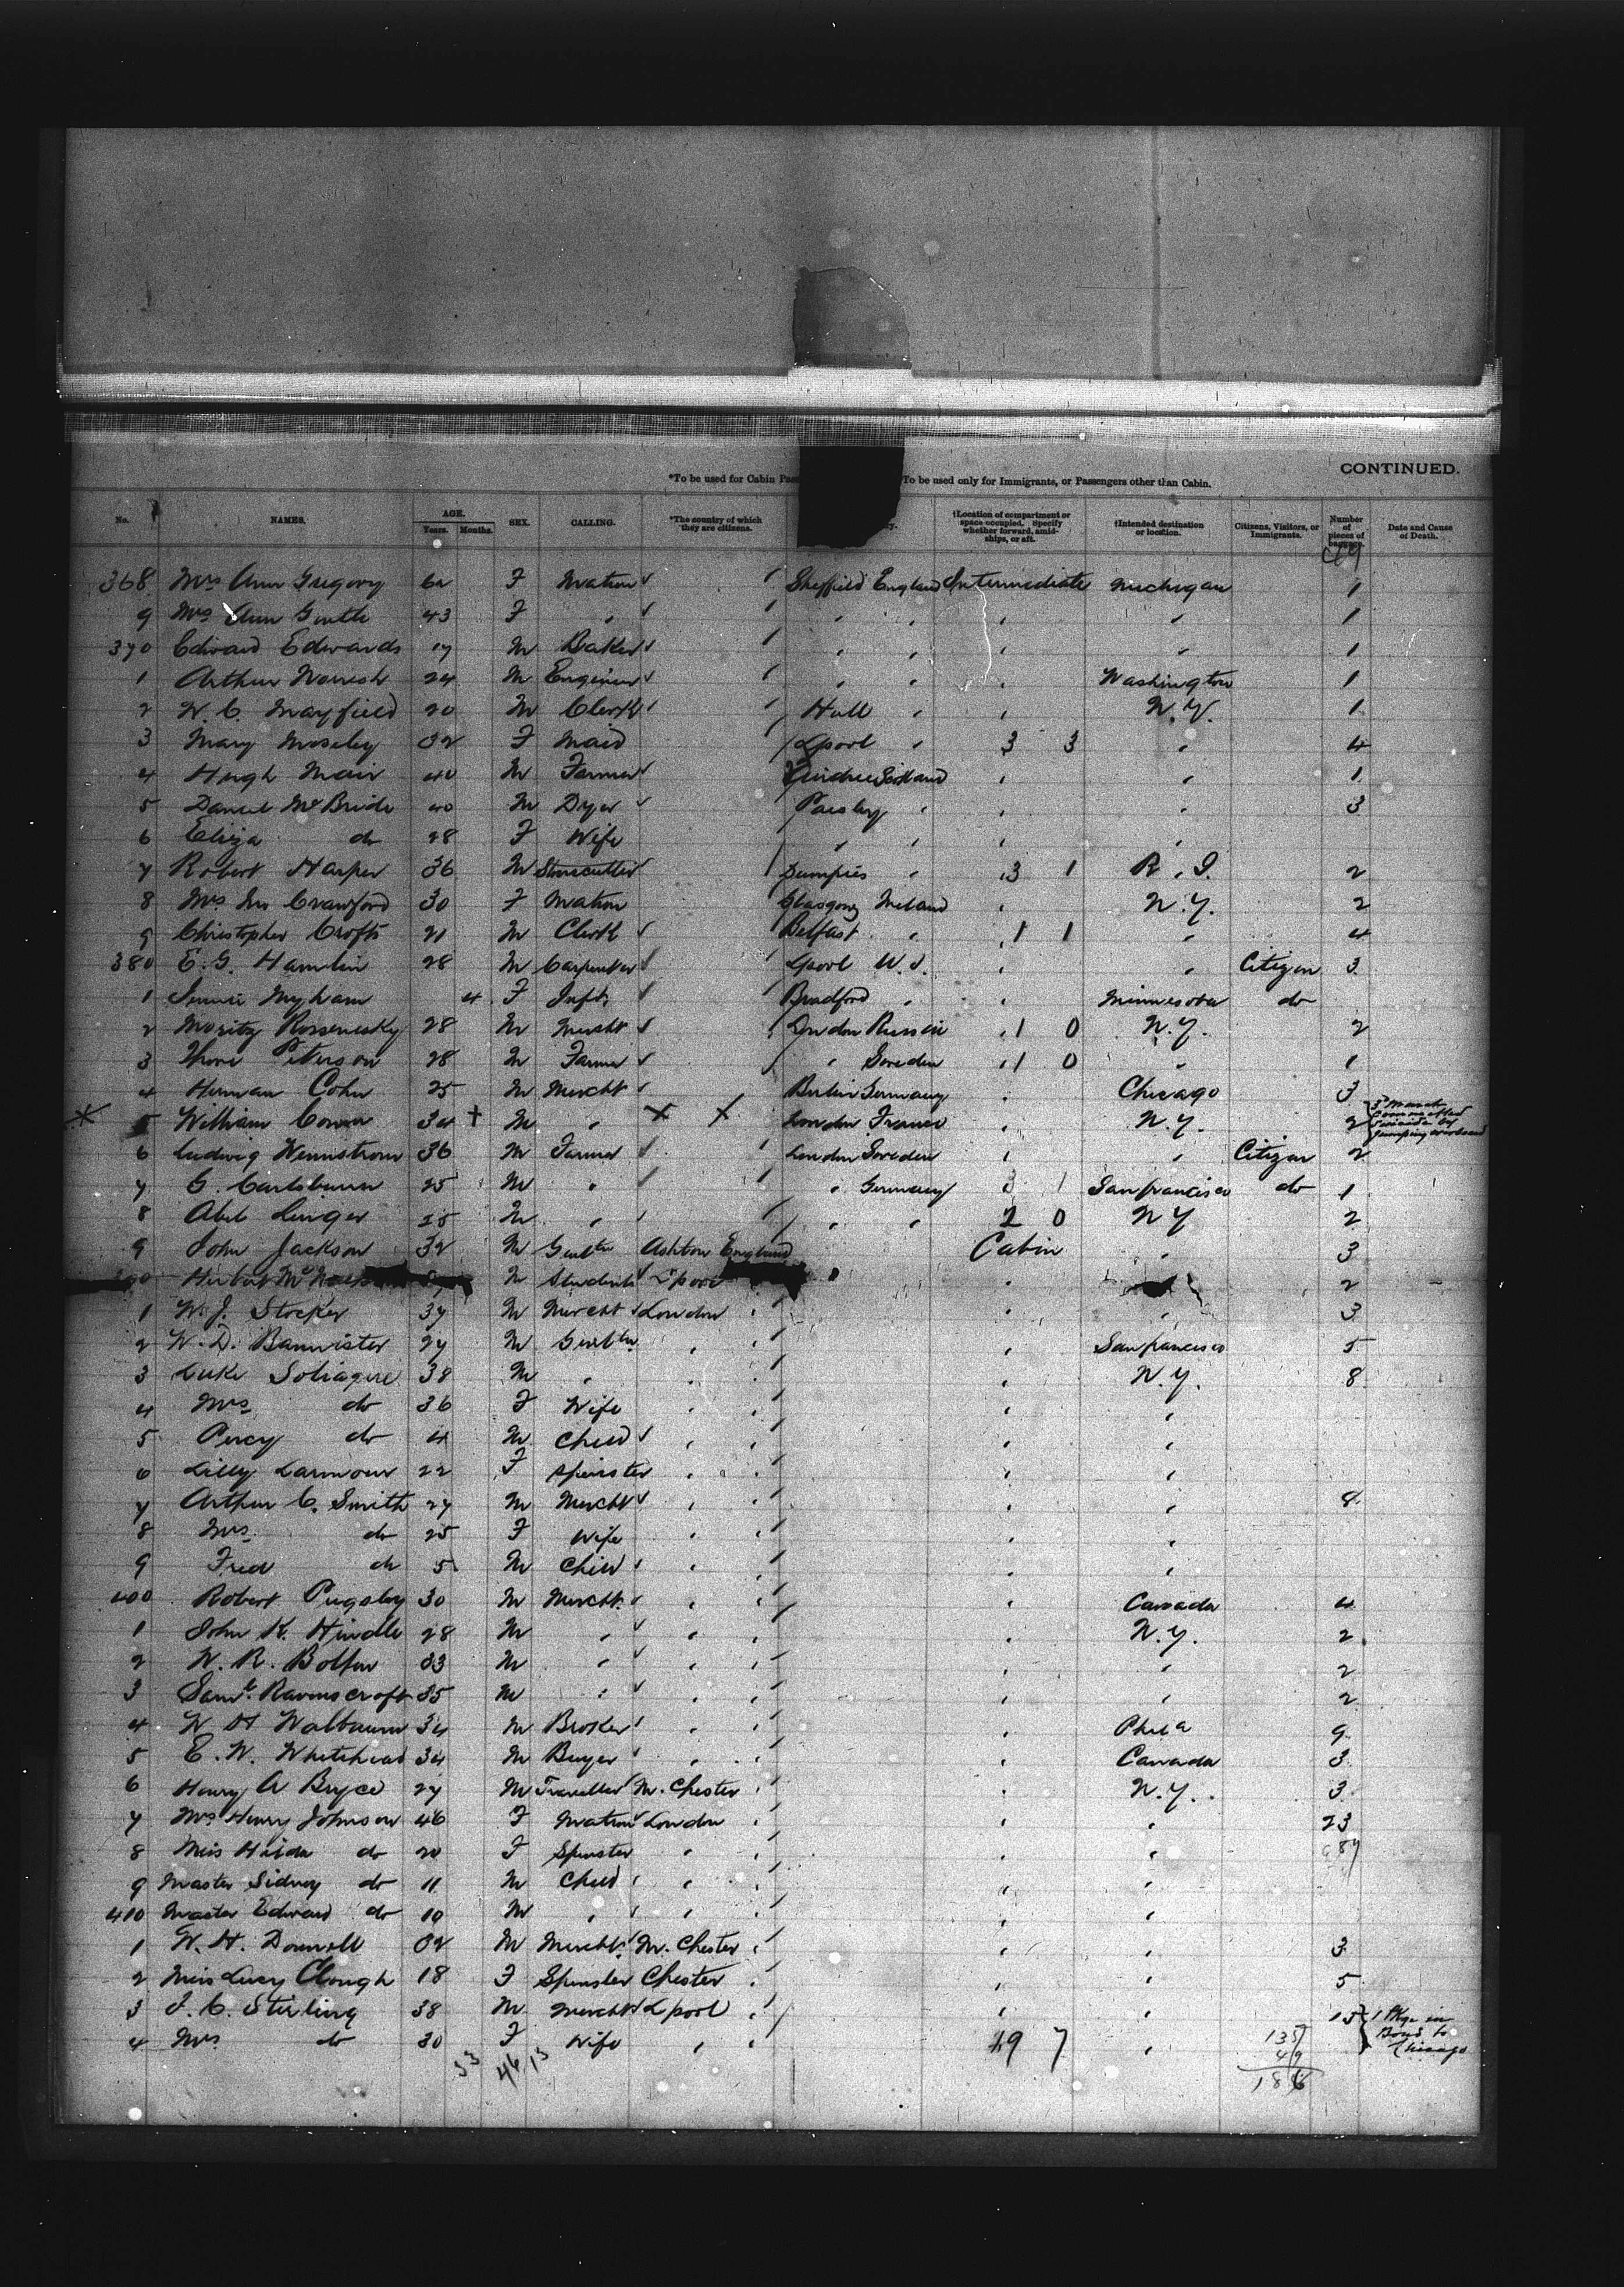 CONTINUED.
*To be used for Cabin Pas To be used only for Immigrants, or Passengers other than Cabin.
No. NAMES. AGE. Years. Months. SEX. CALLING. *The country of which they are citizens. †Location of compartment or space occupied. Specify whether forward, amidships, or aft. †Intended destination or location. Citizens, Visitors, or Immigrants. Number of pieces of baggage. Date and Cause of Death.
368 Mrs Ann Gregory F Matron Sheffield England Intermediate Michigan 1
9 Mrs Ann 43 F " " " " " 1
370 Edward Edwards 17 M Baker " " " " 1
1 Arthur 24 M Engineer " " " Washington 1
2 W. C. Mayfield 20 M Clerk Hull " " N.Y. 1
3 Mary Moseley 32 F Maid Lpool " 3 3 " 4
4 Hugh Mair 40 M Farmer Scotland " " 1
5 Daniel McBride 40 M Dyer Paisley " " " 3
6 Eliza do 28 F Wife " " " "
7 Robert Harper 36 M Stonecutter Dumfries " " 3 1 R. I. 2
8 Mrs Crawford 30 F Matron Glasgow Ireland " N.Y. 2
9 Christopher Crofts 21 M Clerk Belfast " " 1 1 " 4
380 E. G. Hamlin 28 M Carpenter Lpool U.S. " " Citizen 3
1 Ingham 4 F Inft Bradford " " Minnesota do
2 Moritz 28 M Mercht London Russia " 1 0 N.Y. 2
3 Peterson 28 M Farmer " Sweden " 1 0 " 1
4 Herman Cohn 25 M Mercht Berlin Germany " Chicago 3
* 5 William 34 + M " x x London France " N.Y. 2 3d March committed suicide by jumping overboard
6 Ludwig Wennstrom 36 M Farmer London Sweden " " Citizen 2
7 G. 25 M " " Germany 3 1 Sanfrancisco do 1
8 Abel 25 M " " " 2 0 NY 2
9 John Jackson 32 M Gentln Ashton England Cabin " 3
Herbert Mc M Student Lpool " 2
1 W. J. Stocker 37 M Mercht London " " " 3
2 W. D. Bannister 27 M Gentln " " " Sanfrancisco 5
3 Luke 38 M " " " " N.Y. 8
4 Mrs do 36 F Wife " " " "
5 Percy do 4 M Child " " " "
6 Lilly Larmour 22 F Spinster " " " "
7 Arthur C. Smith 27 M Mercht " " " " 8
8 Mrs do 25 F Wife " " " "
9 Fred do 5 M Child " " " "
400 Robert Pugsley 30 M Mercht " " " Canada 4
1 John K. Hindle 28 M " " " " N.Y. 2
2 W. R. 33 M " " " " " 2
3 Saml. Ravenscroft 35 M " " " " " 2
4 W H Walbaum 34 M Broker " " " Phila 9
5 E. W. Whitehead 34 M Buyer " " " Canada 3
6 Henry A Bryce 27 M Traveller M. Chester " " N.Y. 3
7 Mrs Henry Johnson 46 F Matron London " " " 23
8 Miss Hilda do 20 F Spinster " " " "
9 Master Sidney do 11 M Child " " " "
410 Master Edward do 10 M " " " " "
1 W. H. M Mercht M. Chester " " " 3
2 Miss Lucy Clough 18 F Spinster Chester " " " 5
3 J. C. Sterling 38 M Mercht Lpool " " " 15 1 Pkge in Bond to Chicago
4 Mrs do 30 F Wife " " 19 7 "
33 46 13
135
49
186